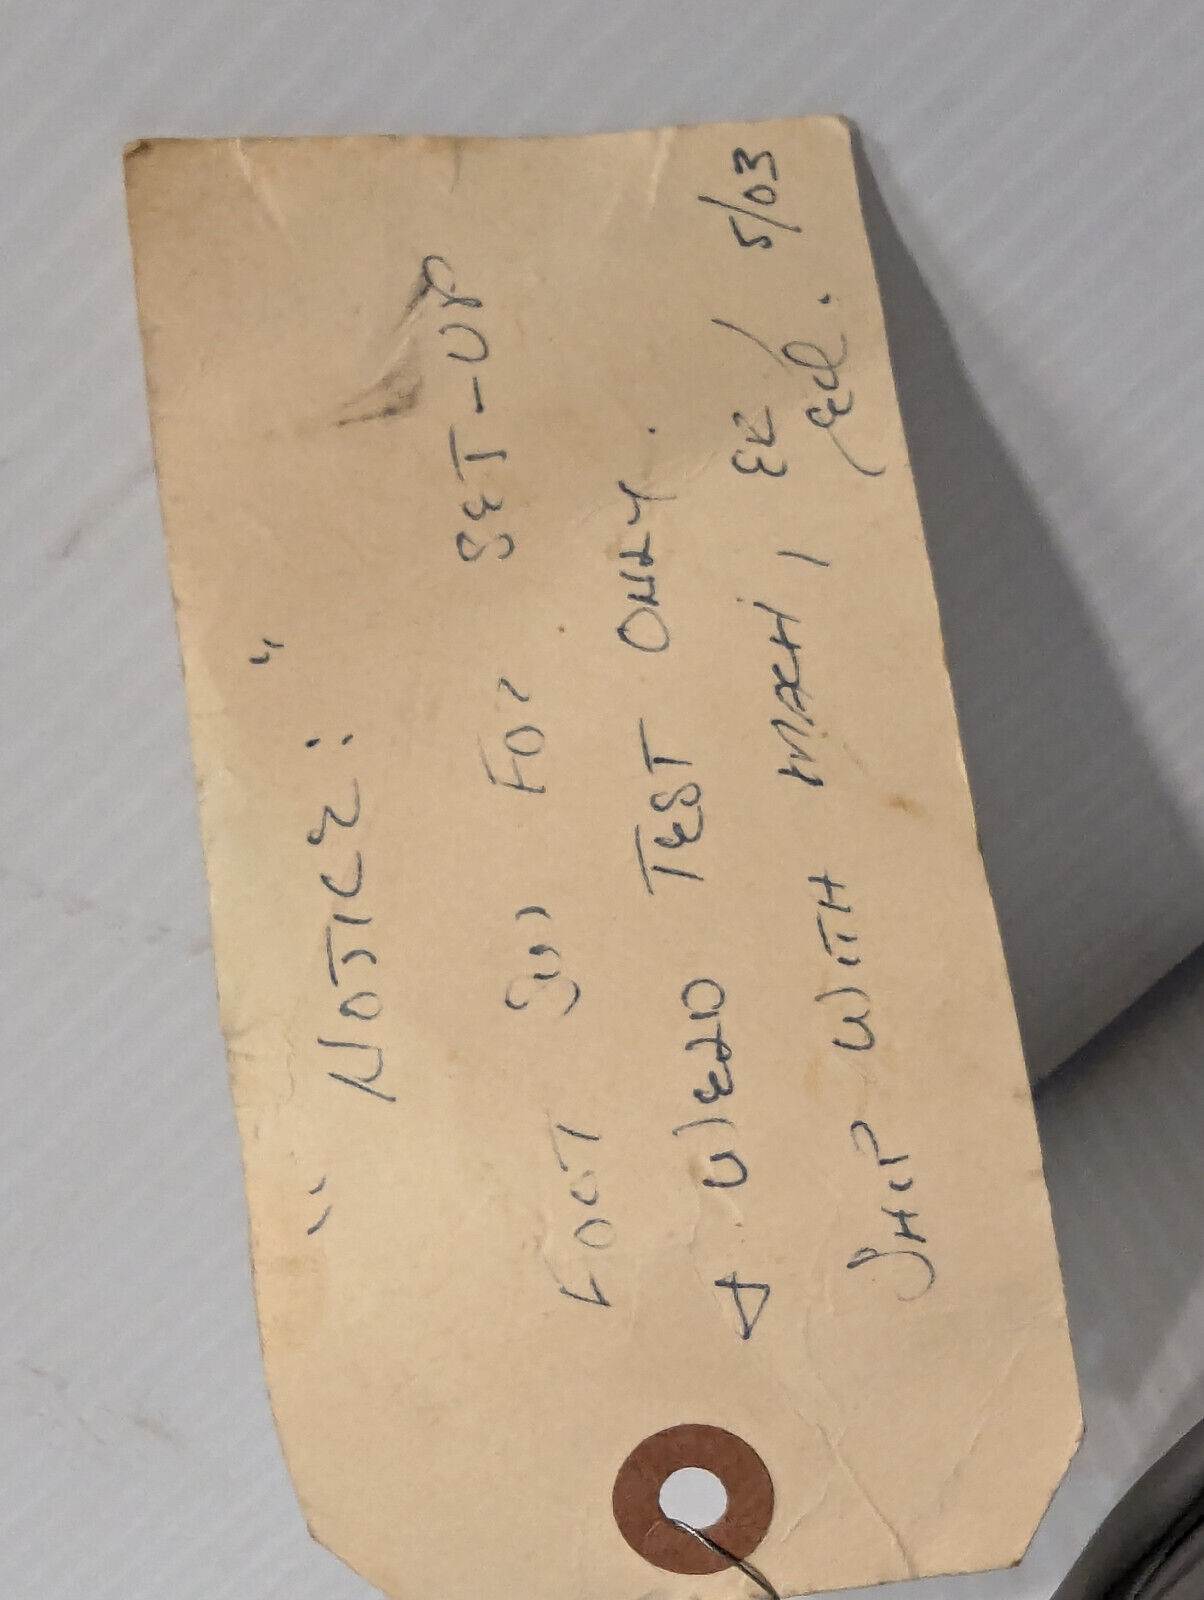 " NOTICE: "
FOOT SW FOR SET-UP
& WELD TEST ONLY.
SHIP WITH MACH, 5/03